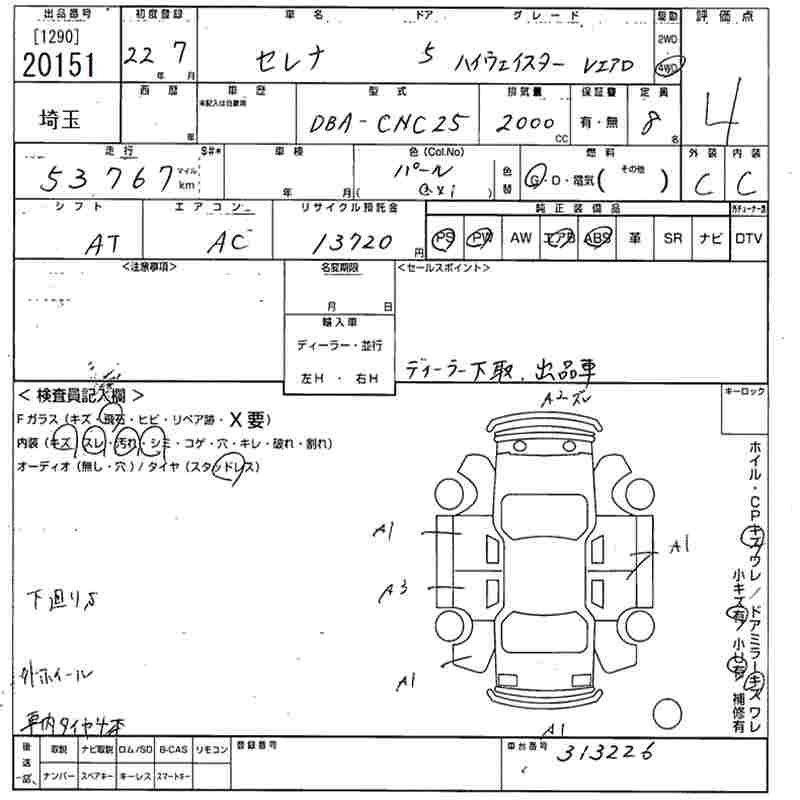 出品番号 初度登録 車名 ドア グレード 駆動 評価点
[1290] 20151 22年 7月 セレナ 5 ハイウェイスター Vエアロ 2WD 4WD 4
埼玉 西暦 年 車歴 未記入は自家用 型式 DBA-CNC25 排気量 2000CC 保証書 有・無 定員 8名
走行 53767 マイル km S#* 車検 年 月 色(Col.No) パール 色替 燃料 G・D・電気( その他 ) 外装 C 内装 C
シフト AT エアコン AC リサイクル預託金 13720円 純正装備品 PS PW AW エアB ABS 革 SR ナビ DTV
<注意事項> 名変期限 月 日 <セールスポイント>
輸入車
ディーラー・並行
左H ・ 右H
ディーラー下取. 出品車
<検査員記入欄> キーロック
Fガラス(キズ・飛石・ヒビ・リペア跡・X要)
内装(キズ・スレ・汚れ・シミ・コゲ・穴・キレ・破れ・割れ)
オーディオ(無し・穴)/タイヤ(スタッドレス)
A2 ズレ
A1 A1
A3
A1
A1
ホイル・CPキズワレ/ドアミラーキズワレ
小キズ有/小U有/補修有
下廻りS
外ホイール
車内タイヤ4本
後送品 取説 ナビ取説 ロム/SD B-CAS リモコン 登録番号 車台番号 313226
ナンバー スペアキー キーレス スマートキー